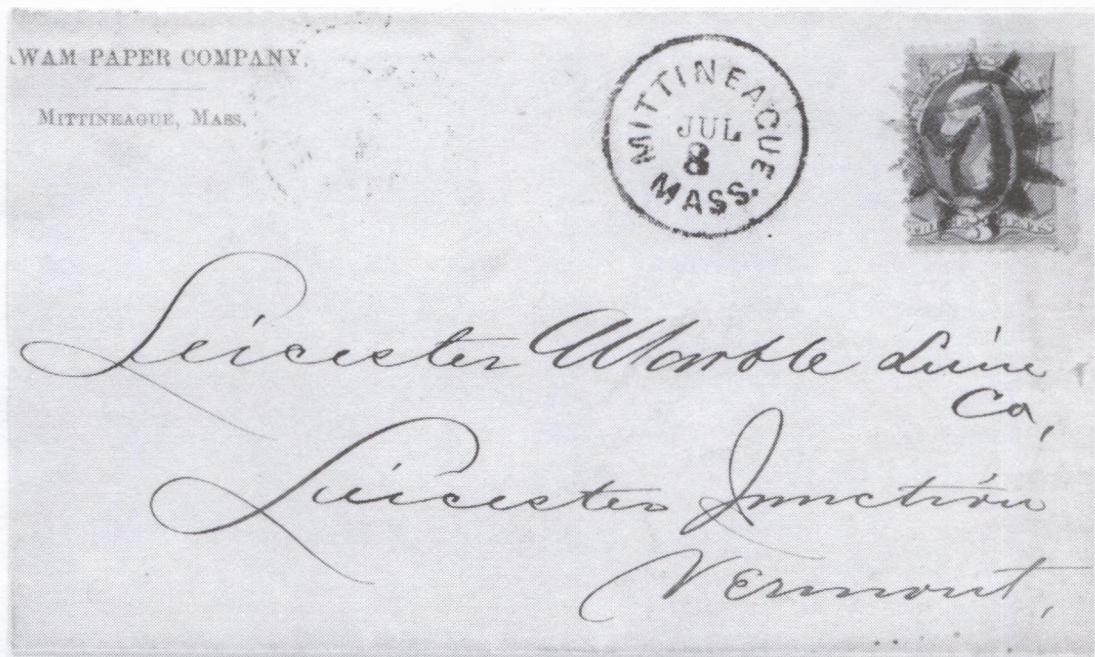 WAM PAPER COMPANY,
MITTINEAGUE, MASS.
MITTINEAGUE
JUL
8
MASS.
3
Leicester Marble Lime
Co,
Leicester Junction
Vermont,